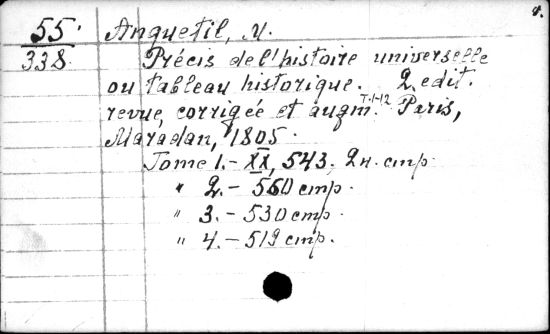 55 Anquetil, M.
338 Précis de l'histoire universelle
ou tableau historique. 2. edit.
revue, corrigée et augm. T. 1-12 Paris,
Maradan, 1805.
Tome 1. - XX, 543, 2 н. стр.
" 2. - 560 стр.
" 3. - 530 стр.
" 4. - 519 стр.